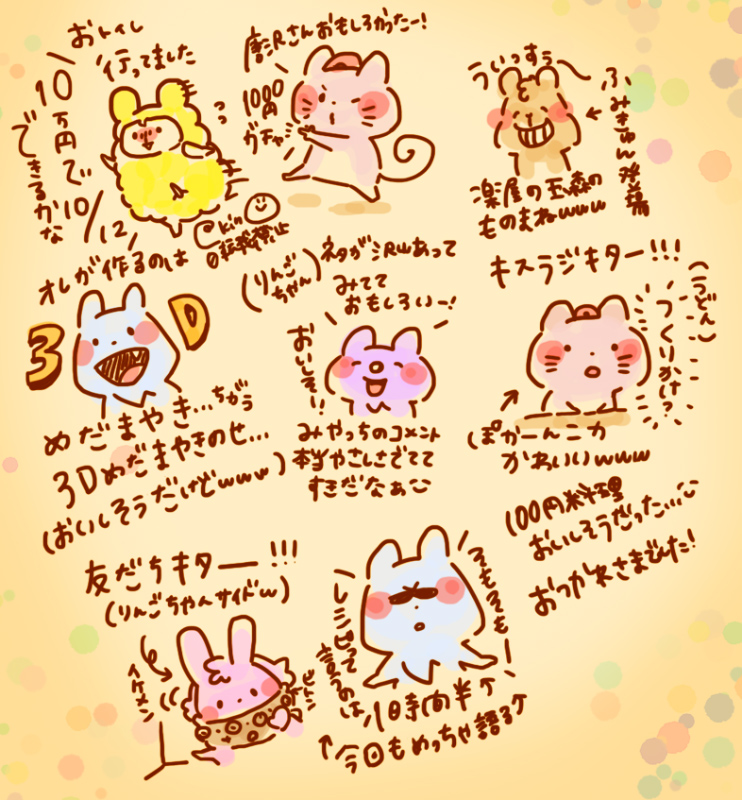 おトイレ
行ってました
10万円で
できるかな
10/12
唐沢さんおもしろかったー!
1000円
ガチャ
ういっすぅ
ふみきゅん
楽屋の玉森の
ものまねwww
kin
オレが作るのは
3D
めだまやき…ちがう
3Dめだまやきのせ…
(おいしそうだけどwww)
(りんごちゃん)
ネタが沢山あって
みてて
おもしろいー!
おいしそー!
みやっちのコメント
本当やさしさでてて
すきだなぁ
キスラジキター!!!
(うどん)
つくりかけ?
ぽかーんニカ
かわいいwww
100円料理
おいしそうだった…
おつかれさまでした!
友だちキター!!!
(りんごちゃんサイドw)
イケメン
そもそもー!
レシピって
言うのは
1時間半ヶ
今回もめっちゃ語るヶ